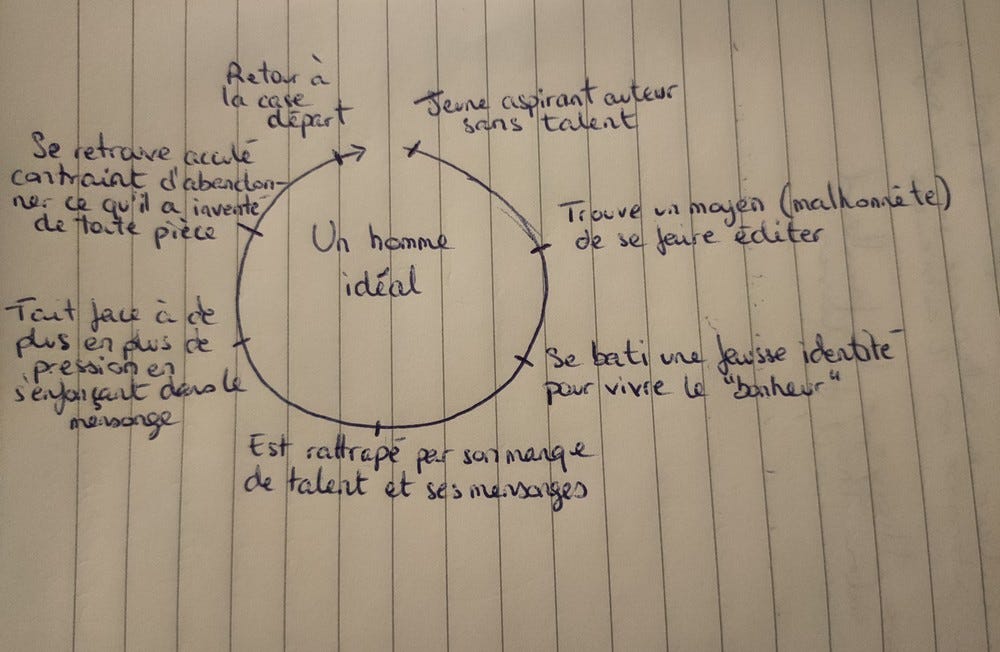 Un homme
idéal
Jeune aspirant auteur
sans talent
Trouve un moyen (malhonnête)
de se faire éditer
Se bati une fausse identité
pour vivre le "bonheur"
Est rattrapé par son manque
de talent et ses mensonges
Tout face à de
plus en plus de
pression en
s'enfonçant dans le
mensonge
Se retrouve acculé
contraint d'abandon-
ner ce qu'il a inventé
de toute pièce
Retour à
la case
départ